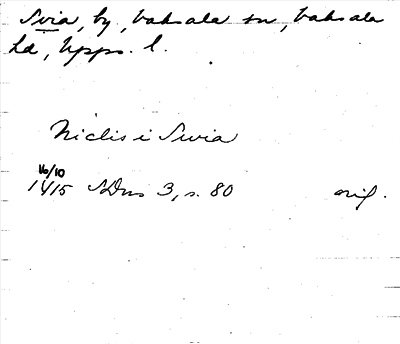 Svia, by, Vaksala sn, Vaksala
hd, Upps. l.
Niclis i Swia
16/10
1415 SDns 3, s. 80 orig.